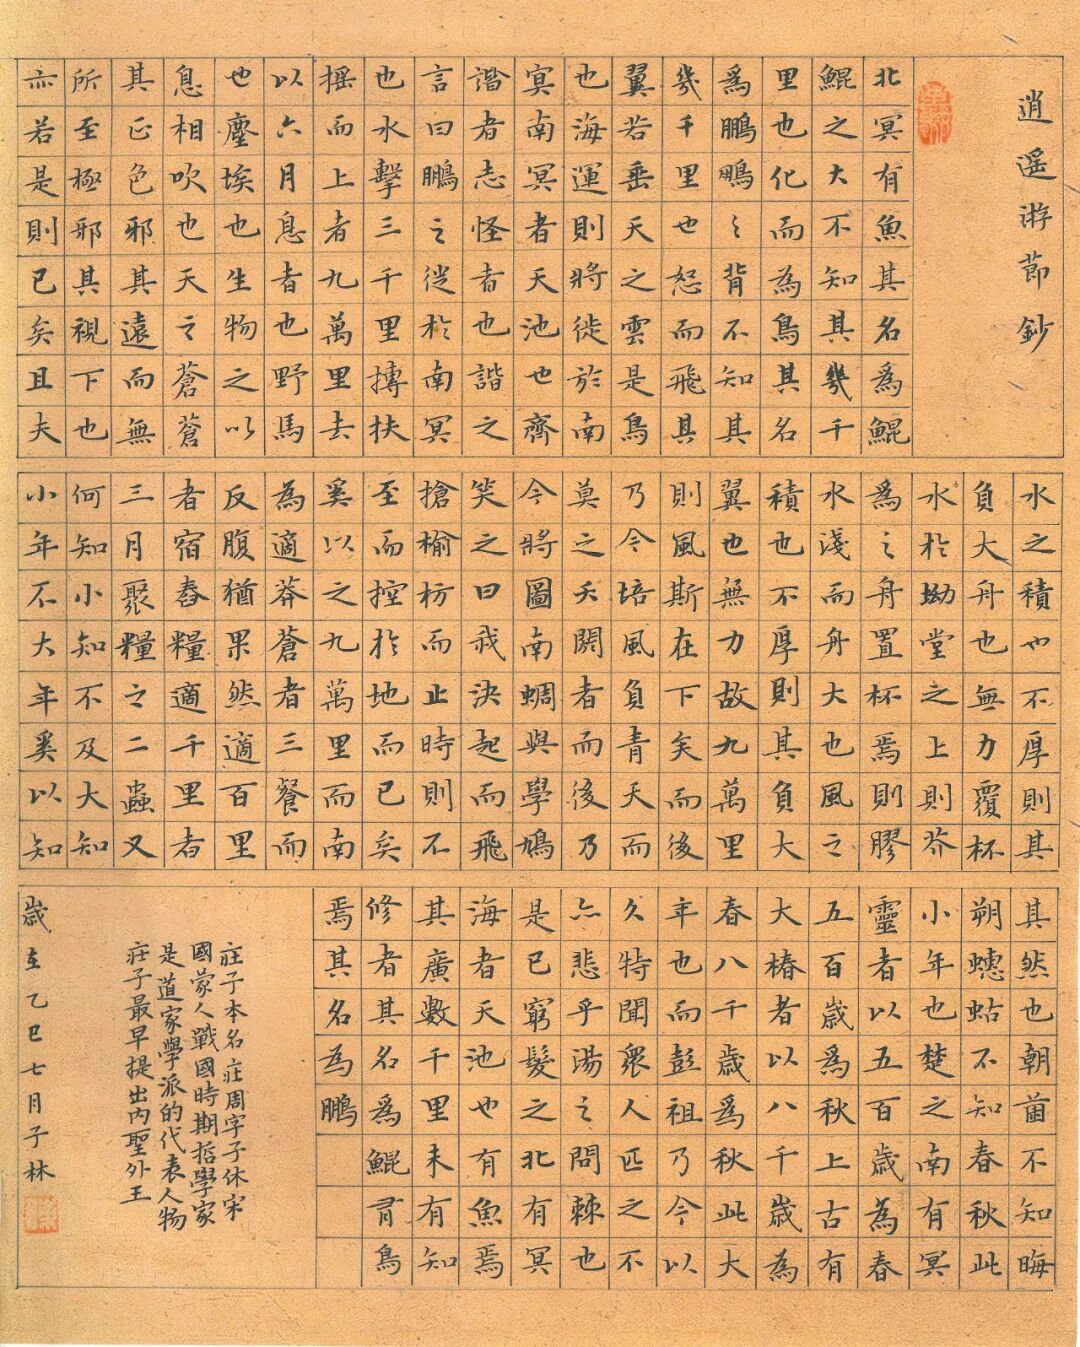 逍遙游節鈔
北冥有魚其名爲鯤
鯤之大不知其幾千
里也化而為鳥其名
爲鵬鵬之背不知其
幾千里也怒而飛具
翼若垂天之雲是鳥
也海運則將徙於南
冥南冥者天池也齊
諧者志怪者也諧之
言曰鵬之徙於南冥
也水擊三千里摶扶
摇而上者九萬里去
以六月息者也野馬
也塵埃也生物之以
息相吹也天之蒼蒼
其正色邪其遠而無
所至極邪其視下也
亦若是則已矣且夫
水之積也不厚則其
負大舟也無力覆杯
水於坳堂之上則芥
爲之舟置杯焉則膠
水淺而舟大也風之
積也不厚則其負大
翼也無力故九萬里
則風斯在下矣而後
乃今培風負青天而
莫之夭閼者而後乃
今將圖南蜩與學鳩
笑之曰我決起而飛
搶榆枋而止時則不
至而控於地而已矣
奚以之九萬里而南
為適莽蒼者三餐而
反腹猶果然適百里
者宿舂糧適千里者
三月聚糧之二蟲又
何知小知不及大知
小年不大年奚以知
其然也朝菌不知晦
朔蟪蛄不知春秋此
小年也楚之南有冥
靈者以五百歲為春
五百歲爲秋上古有
大椿者以八千歲為
春八千歲爲秋此大
年也而彭祖乃今以
久特聞衆人匹之不
亦悲乎湯之問棘也
是已窮髮之北有冥
海者天池也有魚焉
其廣數千里未有知
修者其名爲鯤有鳥
焉其名為鵬
莊子本名莊周字子休宋
國蒙人戰國時期哲學家
是道家學派的代表人物
莊子最早提出内聖外王
歲在乙巳七月子林